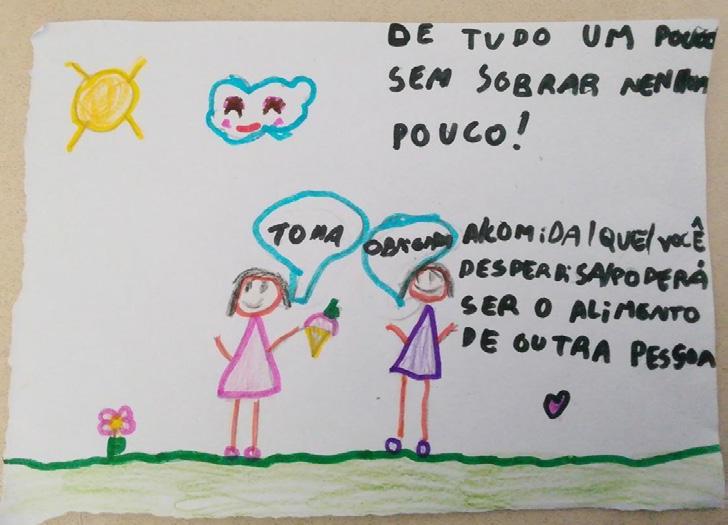 DE TUDO UM POUCO
SEM SOBRAR NENHUM
POUCO!
TOMA
OBRIGADA
A/COMIDA/QUE/VOCÊ
DESPERDISA/PODERÁ
SER O ALIMENTO
DE OUTRA PESSOA